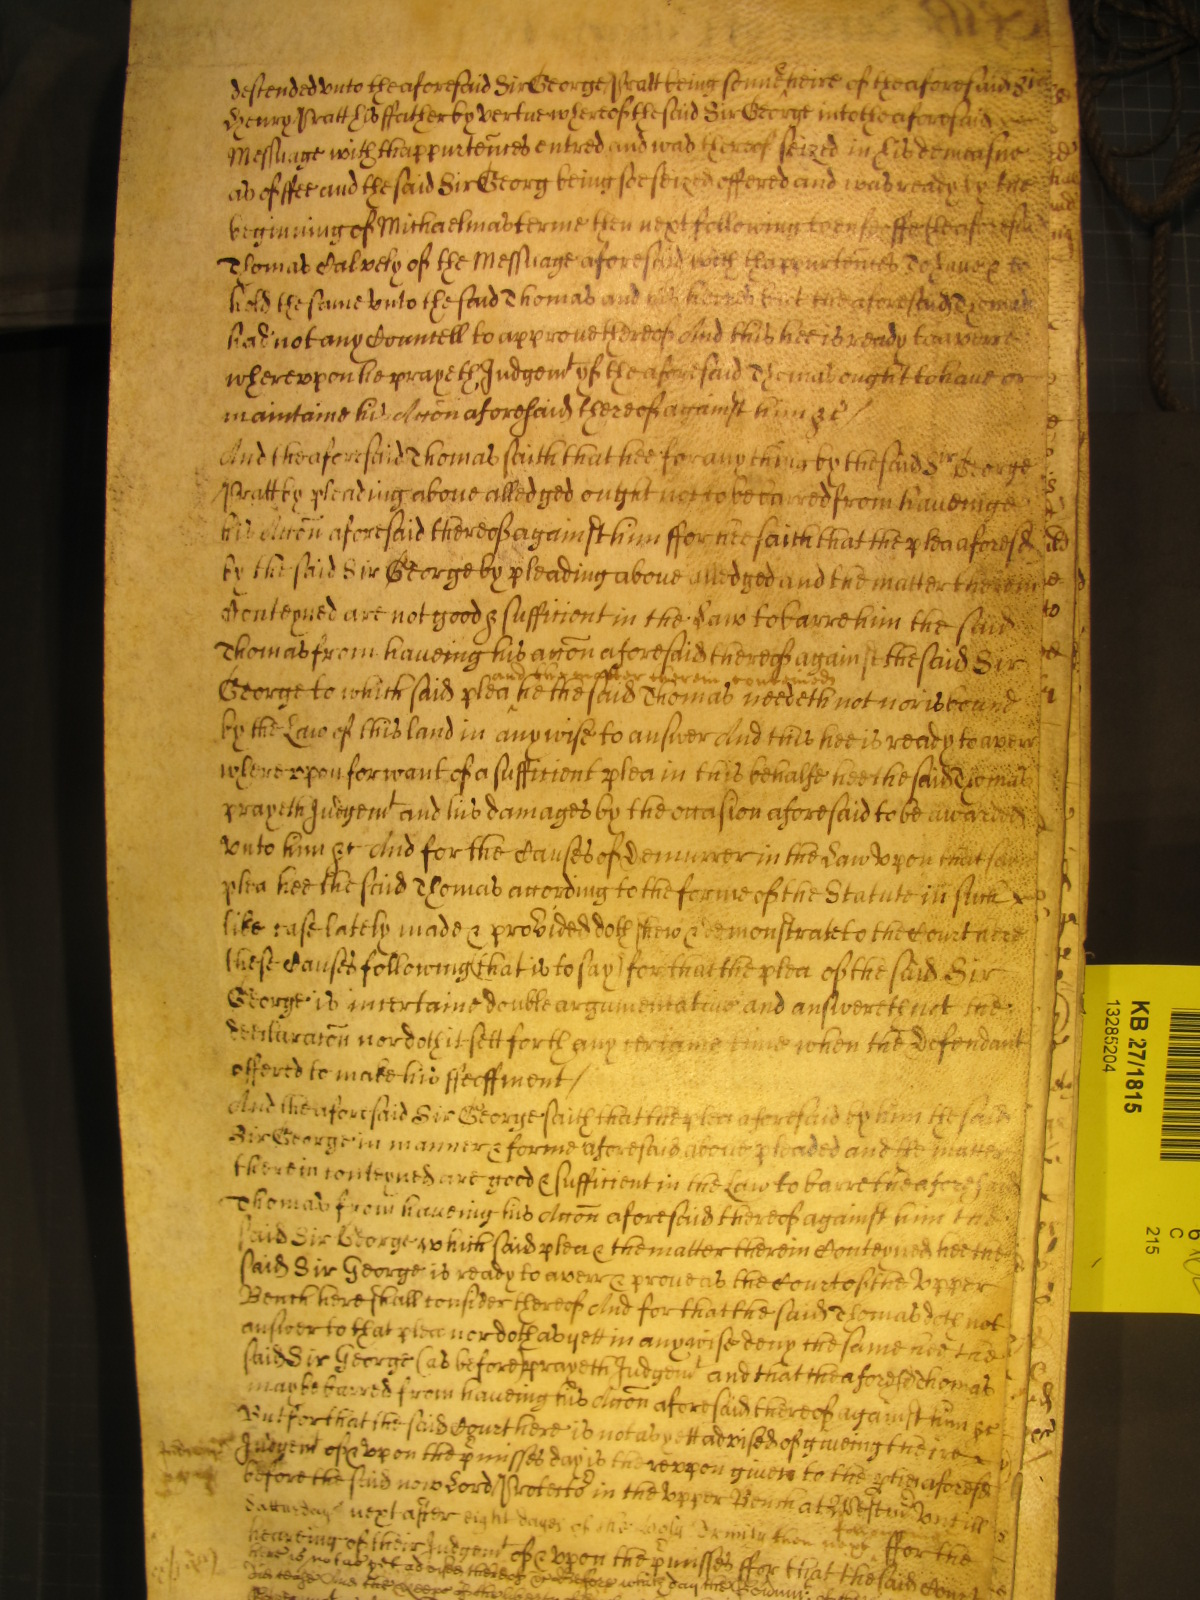 descended vnto the aforesaid Sir George Pratt being sonne & heire of the aforesaid Sir
Henry Pratt his ffather by vertue whereof the said Sir George into the aforesaid
Messuage with thappurtenñces entred and was thereof seized in his demeasne
as of ffee and the said Sir Georg being soe seized offered and was ready by the
beginning of Michaelmas terme then next following to enfeoffe the aforesaid
Thomas Calvely of the Messuage aforesaid with thappurtenñces To haue & to
hold the same vnto the said Thomas and his heires but the aforesaid Thomas
had not any Councell to approue thereof And this hee is ready to averre
wherevpon he prayeth Judgemt yf the aforesaid Thomas ought to haue or
maintaine his Accõn aforesaid thereof against him &c /
And the aforesaid Thomas saith that hee for any thing by the said Sir George
Pratt by pleading aboue alledged ought not to be barred from haueinge
his Accõn aforesaid thereof against him ffor hee saith that the plea aforesd
by the said Sir George by pleading aboue alledged and the matter therein
Conteyned are not good & sufficient in the Law to barre him the said
Thomas from haueing his accõn aforesaid thereof against the said Sir
and the matter therein conteined
George to which said plea he the said Thomas needeth not nor is bound
by the Law of this land in any wise to answer And this hee is ready to averr
wherevpon for want of a sufficient plea in this behalfe hee the said Thomas
prayeth Judgemt and his damages by the occasion aforesaid to be awarded
vnto him &c And for the Causes of Demurrer in the Law vpon that said
plea hee the said Thomas according to the forme of the Statute in such
like case lately made & provided doth shew & demonstrate to the Court here
these Causes following (that is to say) for that the plea of the said Sir
George is incertaine double argumentatiue and answereth not the
declaracõn nor doth it sett forth any certaine time when the Defendant
offered to make his ffeoffment /
And the aforesaid Sir George saith that the plea aforesaid by him the said
Sir George in manner & forme aforesaid aboue pleaded and the matter
therein conteyned are good & sufficient in the Law to barre the aforesaid
Thomas from haueing his Accõn aforesaid thereof against him the
said Sir George which said plea & the matter therein Conteyned hee the
said Sir George is ready to averr & proue as the Court of the Vpper
Bench here shall consider thereof And for that the said Thomas doth not
answer to that plea nor doth as yett in any wise deny the same hee the
said Sir George (as before) prayeth Judgemt and that the aforesd Thomas
may be barred from haueing his Accõn aforesaid thereof against him &c
But for that the said Court here is not as yett advised of giueing theire
Judgemt of & vpon the p̃misses day is therevpon given to the p̱ties aforesd
before the said now Lord Protector in the Vpper Bench at Westm̃ vntill
Satturday next after eight dayes of the Holy Trinity then next ffor the
heareing of their Judgemt of & vpon the p̃misses ffor that the said Court
here is not as yet advised thereof &c before which day
KB 27/1815
13285204
C
215